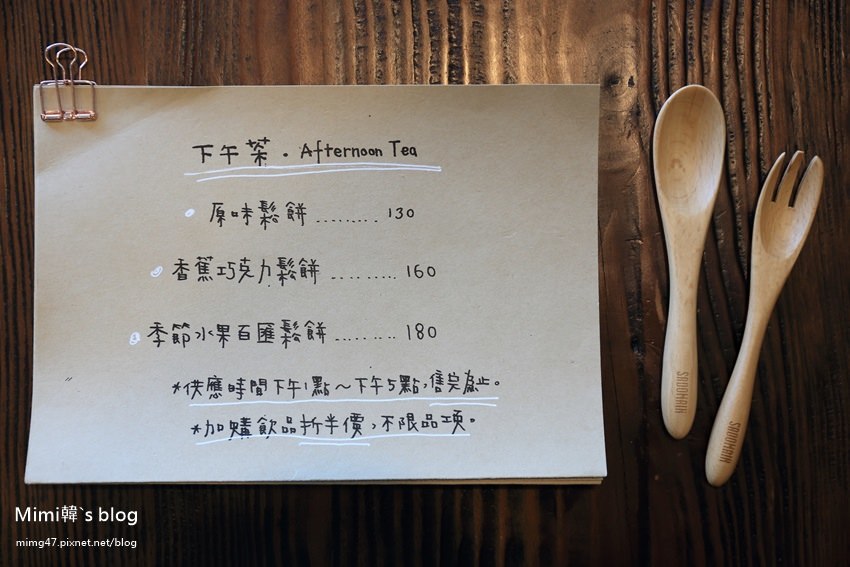 下午茶 . Afternoon Tea
原味鬆餅 ......... 130
香蕉巧克力鬆餅 .......... 160
季節水果百匯鬆餅 ......... 180
*供應時間下午1點~下午5點,售完為止。
*加購飲品折半價,不限品項。
SADOMAIN
SADOMAIN
Mimi韓`s blog
mimg47.pixnet.net/blog